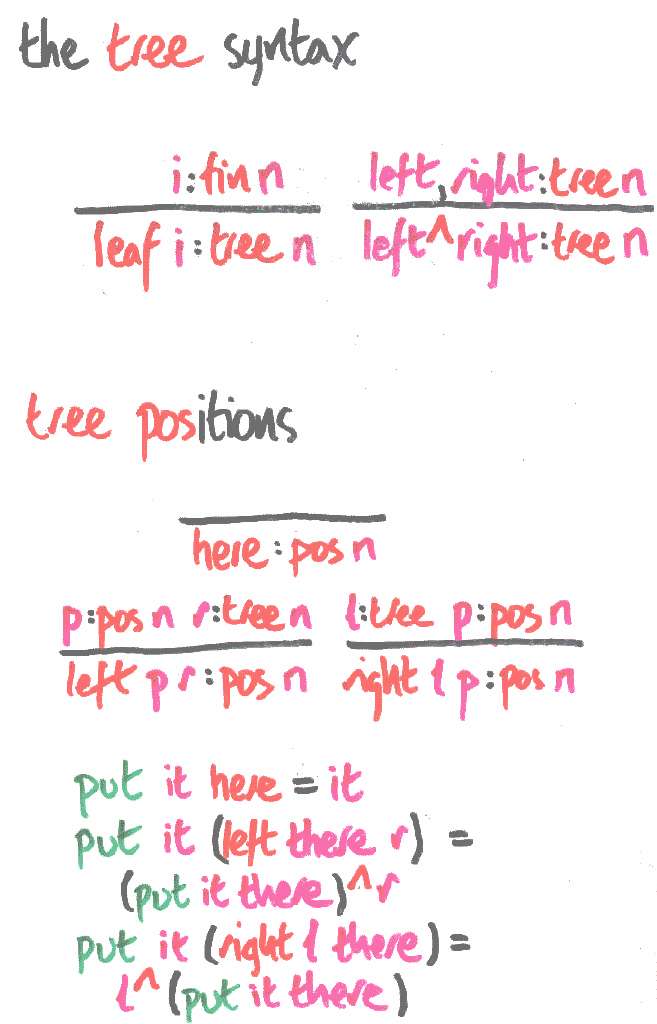 the tree syntax
i:fin n left, right:tree n
leaf i:tree n left^right:tree n
tree positions
here:pos n
p:pos n r:tree n l:tree p:pos n
left p r:pos n right l p:pos n
put it here = it
put it (left there r) =
(put it there)^r
put it (right l there) =
l^(put it there)